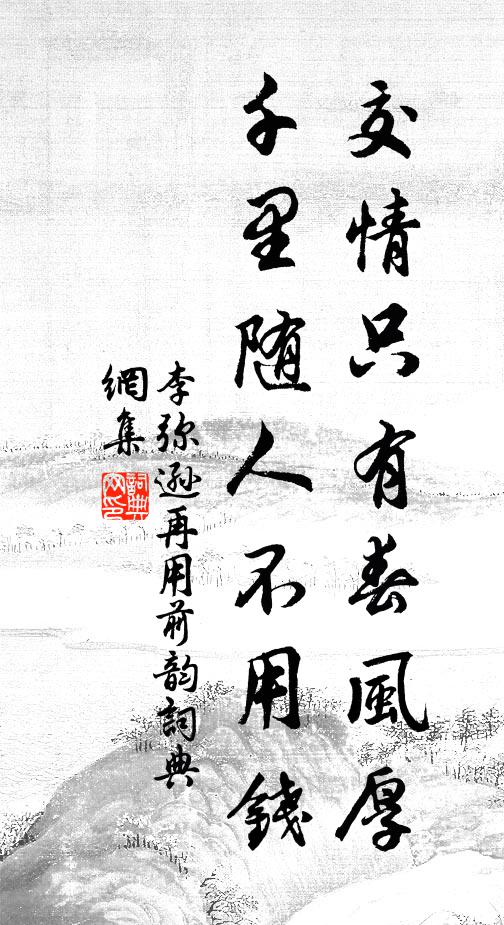 交情只有春風厚
千里随人不用錢
李弥遜再用前韵詞典
網集
詞典
网印